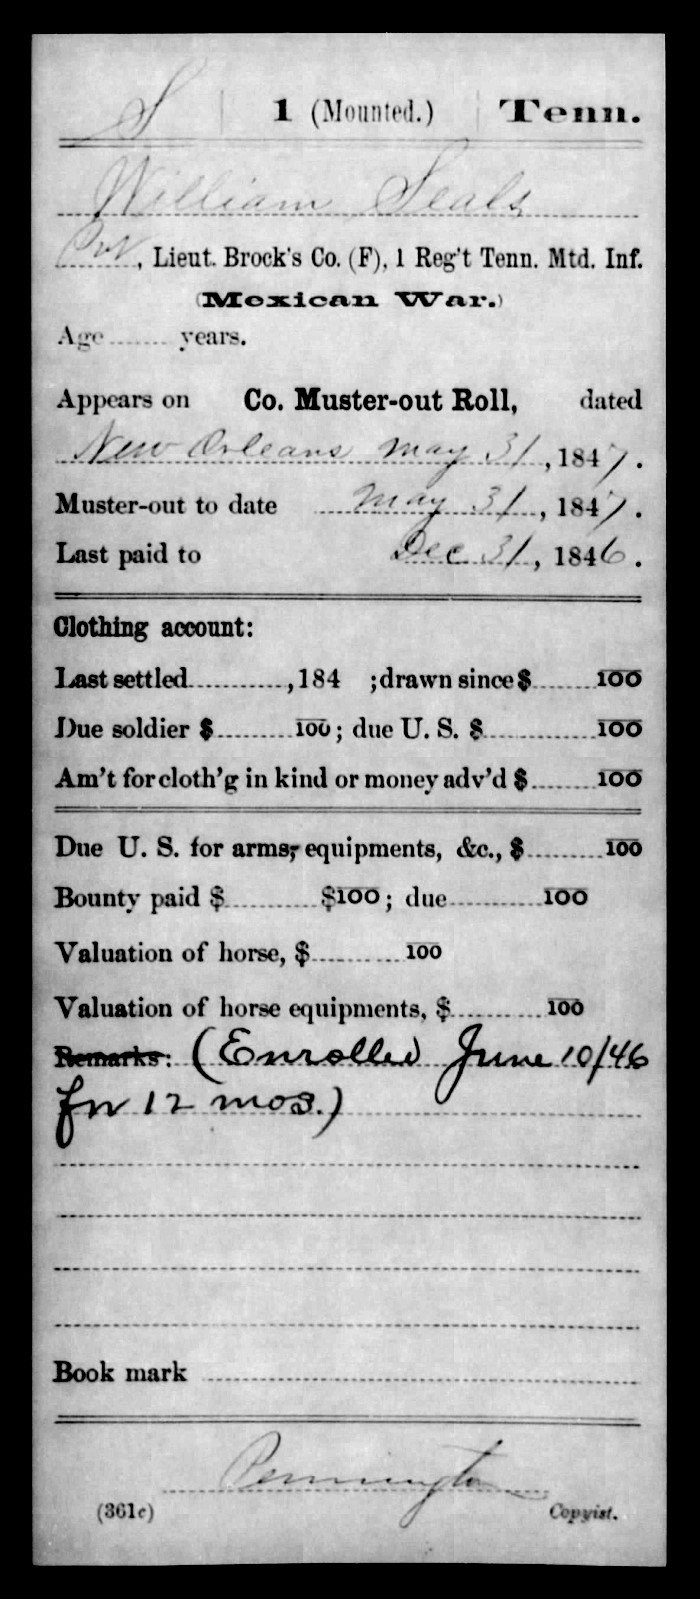 S 1 (Mounted.) Tenn.
William Seals
Pvt, Lieut. Brock's Co. (F), 1 Reg't Tenn. Mtd. Inf.
(Mexican War.)
Age ........ years.
Appears on Co. Muster-out Roll, dated
New Orleans May 31, 1847.
Muster-out to date May 31, 1847.
Last paid to Dec 31, 1846.
Clothing account:
Last settled............, 184 ; drawn since $........100
Due soldier $..........100; due U. S. $..............100
Am't for cloth'g in kind or money adv'd $........100
Due U. S. for arms, equipments, &c., $..........100
Bounty paid $............$100; due............100
Valuation of horse, $............100
Valuation of horse equipments, $............100
Remarks: (Enrolled June 10/46
for 12 mos.)
Book mark
Pennington
(361c) Copyist.